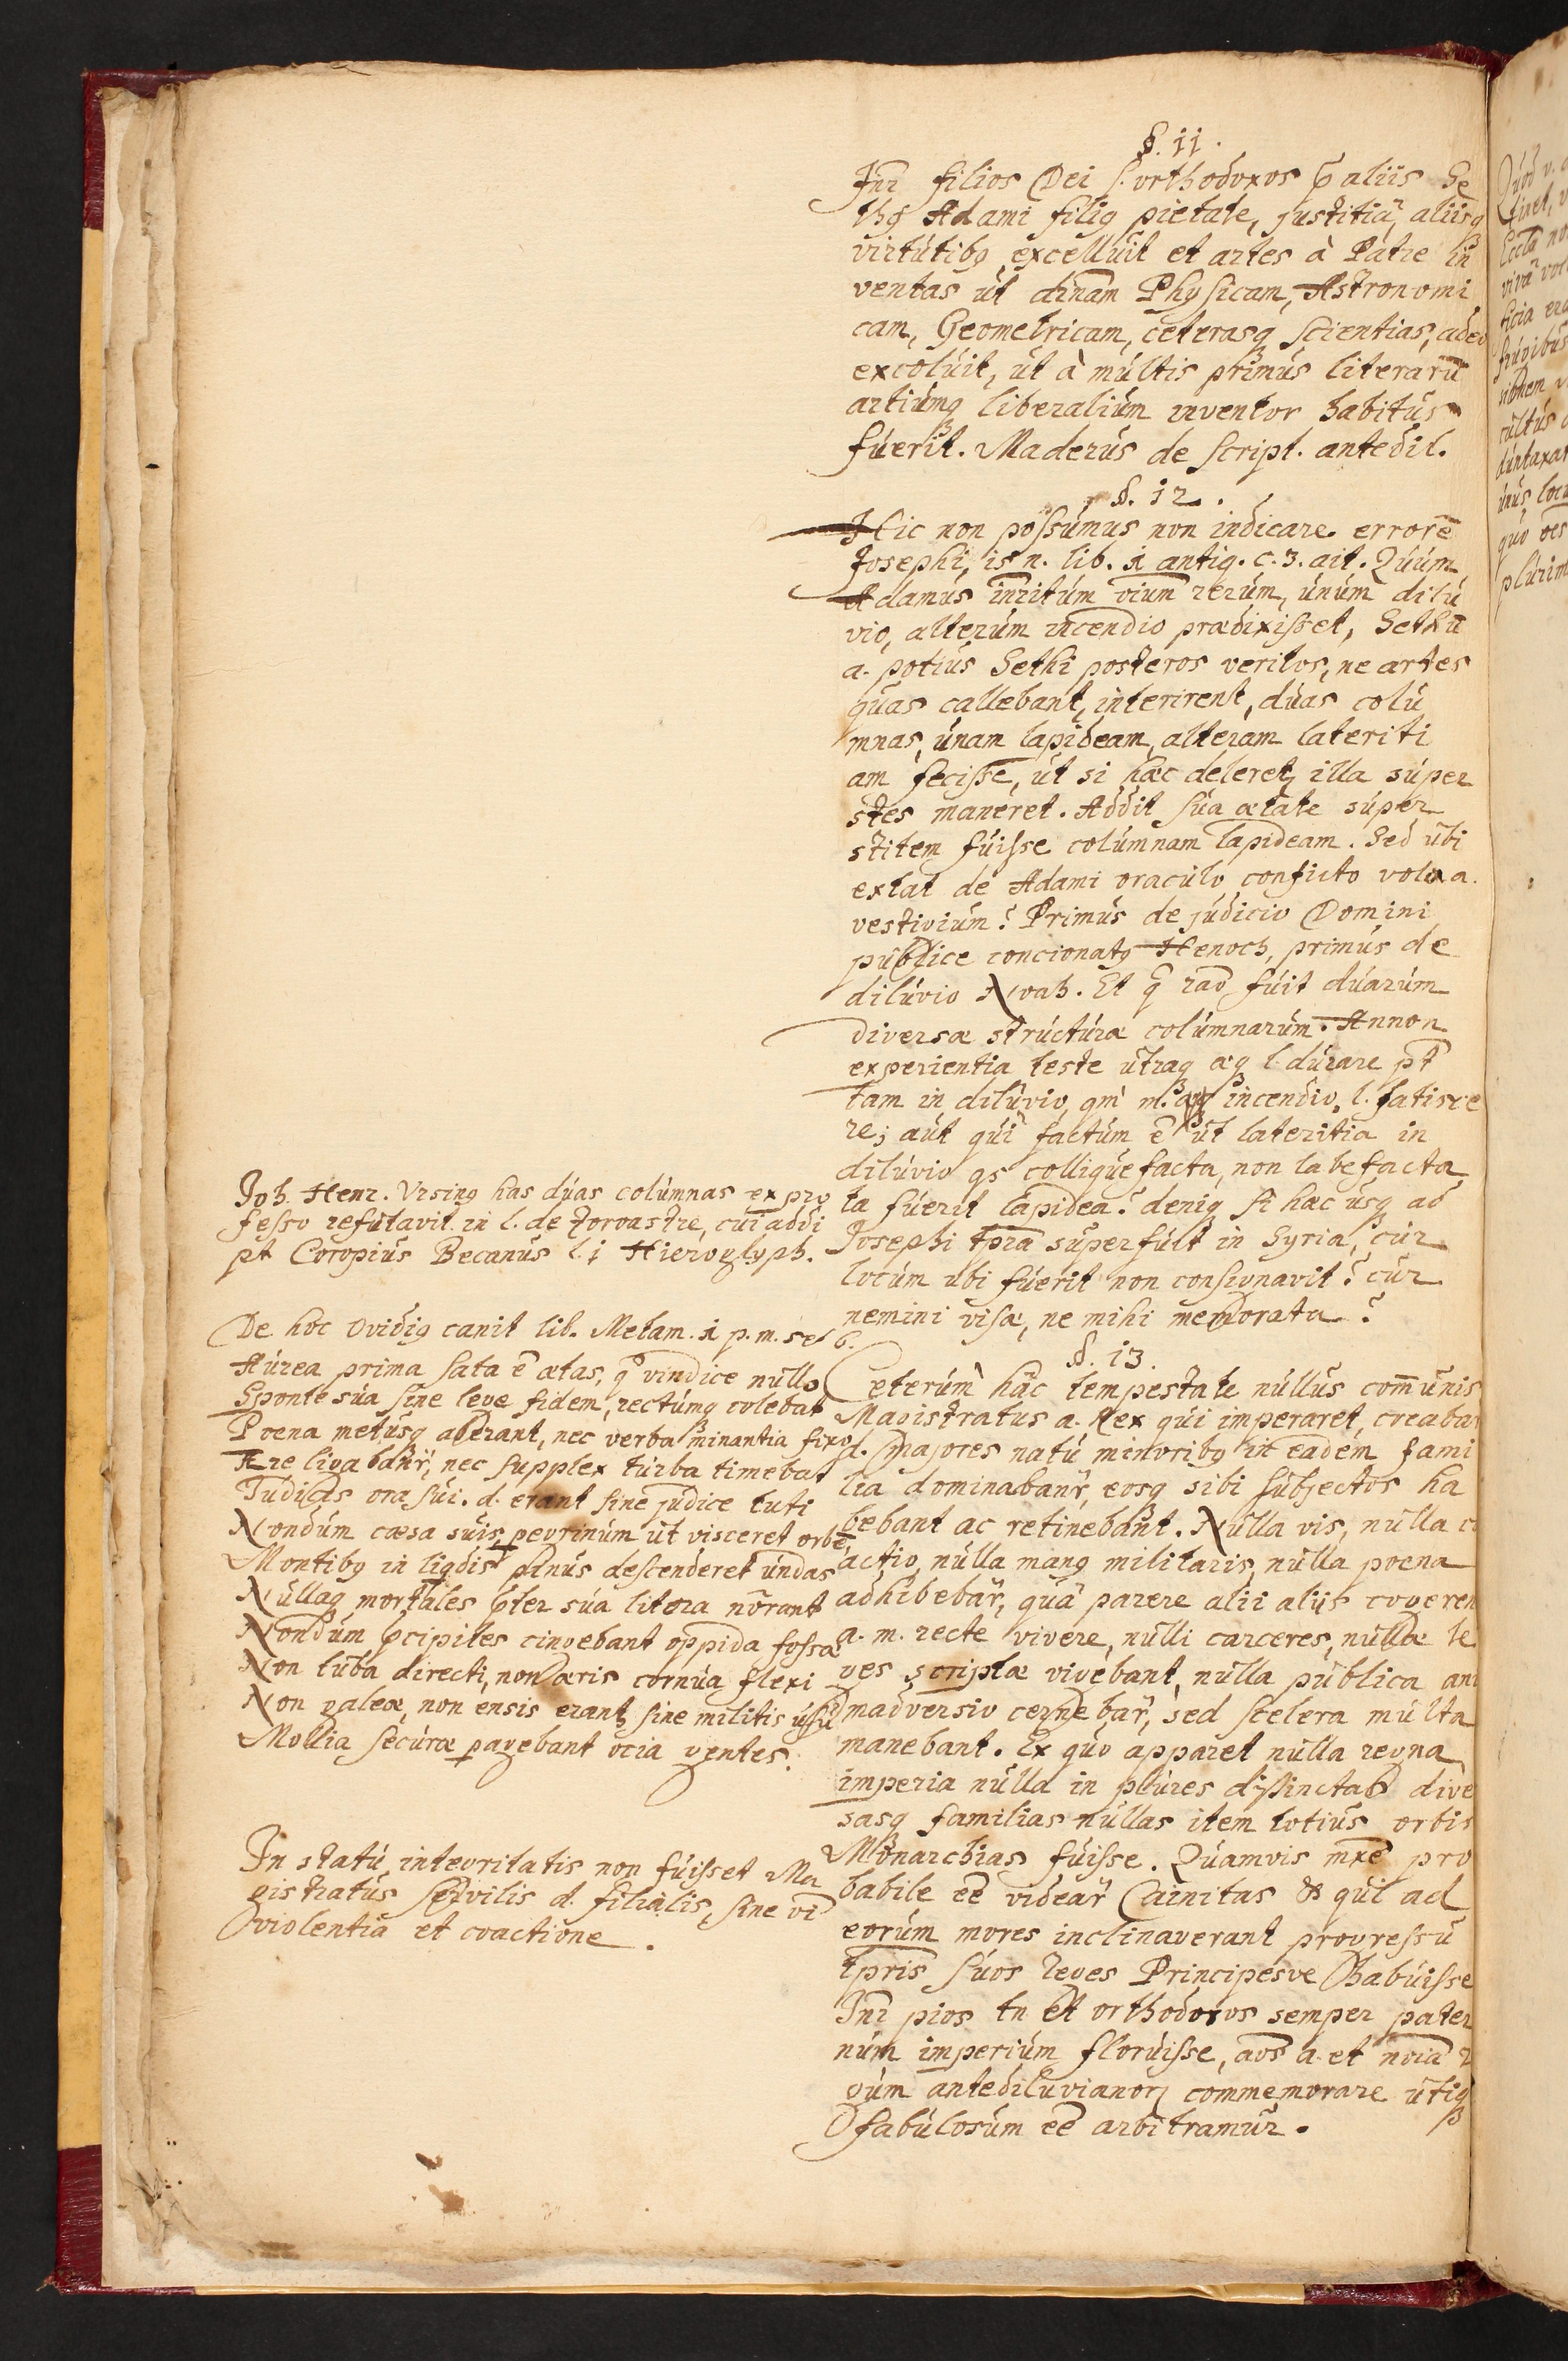 §. 11.
Inr filios Dei s. orthodoxos p aliis Se
thq Adami filiq pietate, justitiâ, aliisq
virtutibq excelluit et artes à Patre in
ventas ut dinam Physicam, Astronomi
cam, Geometricam, ceterasq scientias, adeo
excoluit, ut à multis primus literarū
artiumq liberalium inventor habitus
fuerit. Maderus de script. antedil.
§. 12.
Hic non possumus non indicare errorē
Josephi, is n. lib. 1 antiq. c. 3. ait. Quum
Adamus inritum vium rerum, unum dilu
vio, alterum incendio prædixisset, Sethū
a. potius Sethi posteros veritos, ne artes
quas callebant, interirent, duas colu
mnas, unam lapideam, alteram lateriti
am fecisse, ut si hæc deleret, illa super
stes maneret. Addit sua ætate super
stitem fuisse columnam lapideam. Sed ubi
extat de Adami oraculo conficto vola a.
vestigium? Primus de judicio Domini
publice concionatq Henoch, primus de
diluvio Noah. Et q rao fuit duarum
diversæ structuræ columnarum. Annon
experientia teste utraq æq l. durare pt
tam in diluvio, qm in incendio, l. fatisce
re; aut qui factum ē ut lateritia in
diluvio qs colliquefacta, non labefacta
ta fuerit lapidea? deniq si hæc usq ad
Josephi tpra superfuit in Syria, cur
locum ubi fuerit non consignavit? cur
nemini visa, ne mihi memorata?
§. 13.
Ceterum hâc tempestate nullus com̄unis
Magistratus a. Rex qui imperaret, creaba
d. majores natu minoribq in eadem fami
lia dominabanr, eosq sibi subjectos ha
bebant ac retinebant. Nulla vis, nulla c
actio, nulla manq militaris, nulla poena
adhibebar, quâ parere alii aliis cogeren
a. m. recte vivere, nulli carceres, nullæ le
ges scriptæ vigebant, nulla publica ani
madversio cernebar, sed scelera multa
manebant. Ex quo apparet nulla regna
imperia nulla in plures distinctas dive
sasq familias nullas item totius orbis
Monarchias fuisse. Quamvis mxē pro
babile eē videar Cainitas & qui ad
eorum mores inclinaverant progressu
tpris suos leges Principesve habuisse
Inr pios tn et orthodoxos semper pater
num imperium floruisse, aos a. et noia r
gum antediluvianorq commemorare utiq
fabulosum eē arbitramur.
Joh. Henr. Ursinq has duas columnas ex pro
fesso refutavit in l. de Zoroastre, cui addi
pt Goropius Becanus l. 1 Hieroglyph.
De hoc Ovidiq canit lib. Metam. 1 p. m. 5 et 6.
Aurea prima sata ē ætas, q vindice nullo
Sponte sua sine lege fidem, rectumq colebat
Poena metusq aberant, nec verba minantia fixo
Ære ligabanr, nec supplex turba timebat
Judicis ora sui. d. erant sine judice tuti
Nondum cæsa suis, pegrinum ut visceret orbē,
Montibq in liqdis pinus descenderet undas
Nullaq mortales pter sua litora nōrant
Nondum pcipites cingebant oppida fossæ
Non tuba directi, non æris cornua flexi
Non galeæ, non ensis erant, sine militis usu
Mollia securæ pagebant ocia gentes.
In statu integritatis non fuisset Ma
gistratus servilis d. filialis, sine vi
violentia et coactione.